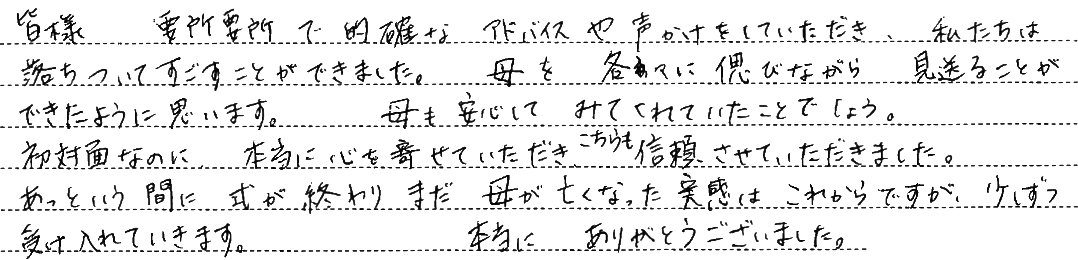 皆様 要所要所で的確なアドバイスや声かけをしていただき、私たちは
落ちついてすごすことができました。 母を各々に偲びながら 見送ることが
できたように思います。 母も安心してみてくれていたことでしょう。
初対面なのに、本当に心を寄せていただき、こちらも信頼させていただきました。
あっという間に式が終わりまだ母が亡くなった実感はこれからですが、少しずつ
受け入れていきます。 本当に ありがとうございました。